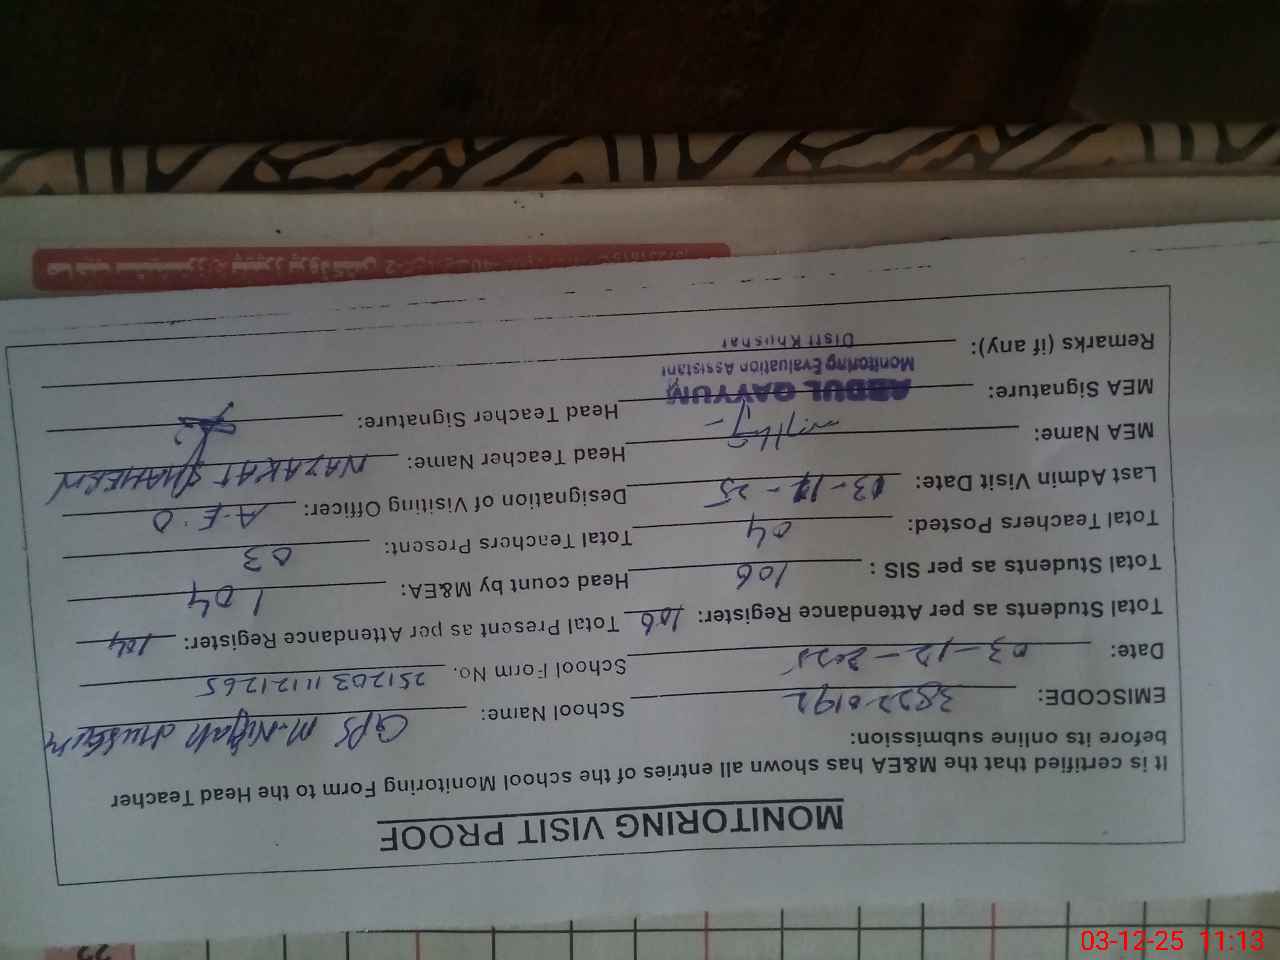 MONITORING VISIT PROOF
It is certified that the M&EA has shown all entries of the school Monitoring Form to the Head Teacher
before its online submission:
EMISCODE: School Name: GPS
Date: 03-12-2025 School Form No. 25120311121265
Total Students as per Attendance Register: 106 Total Present as per Attendance Register: 104
Total Students as per SIS : 106 Head count by M&EA: 104
Total Teachers Posted: 04 Total Teachers Present: 03
Last Admin Visit Date: Designation of Visiting Officer: A.E.O
MEA Name: Head Teacher Name: NAZAKAT SHAHEEN
MEA Signature: Head Teacher Signature:
ABDUL QAYYUM
Monitoring Evaluation Assistant
Distt Khushab
Remarks (if any):
03-12-25 11:13